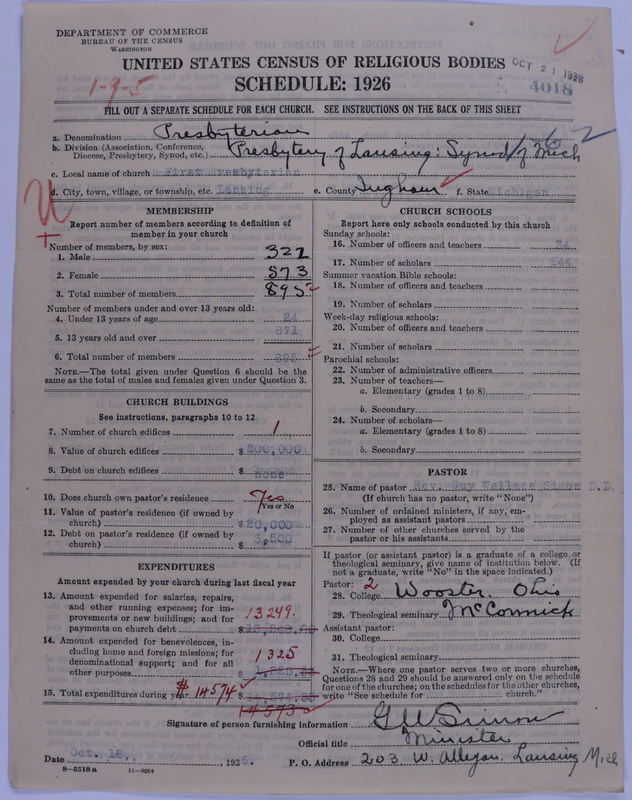 DEPARTMENT OF COMMERCE
BUREAU OF THE CENSUS
WASHINGTON
UNITED STATES CENSUS OF RELIGIOUS BODIES
SCHEDULE: 1926
OCT 21 1926
4018
1-9-5
FILL OUT A SEPARATE SCHEDULE FOR EACH CHURCH. SEE INSTRUCTIONS ON THE BACK OF THIS SHEET
a. Denomination Presbyterian
b. Division (Association, Conference, Diocese, Presbytery, Synod, etc.) Presbytery of Lansing: Synod of Mich
c. Local name of church First Presbyterian
d. City, town, village, or township, etc. Lansing e. County Ingham f. State Michigan
MEMBERSHIP
Report number of members according to definition of
member in your church
Number of members, by sex:
1. Male 322
2. Female 573
3. Total number of members 895
Number of members under and over 13 years old:
4. Under 13 years of age 24
5. 13 years old and over 871
6. Total number of members 895
NOTE.—The total given under Question 6 should be
same as the total of males and females given under Question 3.
CHURCH BUILDINGS
See instructions, paragraphs 10 to 12
7. Number of church edifices 1
8. Value of church edifices $ 200,000
9. Debt on church edifices $ none
10. Does church own pastor's residence Yes
Yes or No
11. Value of pastor's residence (if owned by
church) $ 20,000
12. Debt on pastor's residence (if owned by
church) $ 3,500
EXPENDITURES
Amount expended by your church during last fiscal year
13. Amount expended for salaries, repairs,
and other running expenses; for im-
provements or new buildings; and for
payments on church debt $ 13249.
14. Amount expended for benevolences, in-
cluding home and foreign missions; for
denominational support; and for all
other purposes $ 1325
15. Total expenditures during year $ 14574
14573
CHURCH SCHOOLS
Report here only schools conducted by this church
Sunday schools:
16. Number of officers and teachers 34
17. Number of scholars 244
Summer vacation Bible schools:
18. Number of officers and teachers
19. Number of scholars
Week-day religious schools:
20. Number of officers and teachers
21. Number of scholars
Parochial schools:
22. Number of administrative officers
23. Number of teachers—
a. Elementary (grades 1 to 8)
b. Secondary
24. Number of scholars—
a. Elementary (grades 1 to 8)
b. Secondary
PASTOR
25. Name of pastor Rev. Guy Wallace Simon D.D.
(If church has no pastor, write "None")
26. Number of ordained ministers, if any, em-
ployed as assistant pastors
27. Number of other churches served by the
pastor or his assistants
If pastor (or assistant pastor) is a graduate of a college or
theological seminary, give name of institution below. (If
not a graduate, write "No" in the space indicated.)
Pastor: 2
28. College Wooster, Ohio
29. Theological seminary McCormick
Assistant pastor:
30. College
31. Theological seminary
NOTE.—Where one pastor serves two or more churches,
Questions 28 and 29 should be answered only on the schedule
for one of the churches; on the schedules for the other churches,
write "See schedule for church."
Signature of person furnishing information G W Simon
Official title Minister
Date Oct. 18, 1926. P. O. Address 203 W. Allegan. Lansing Mich
8—5518a 11—9054